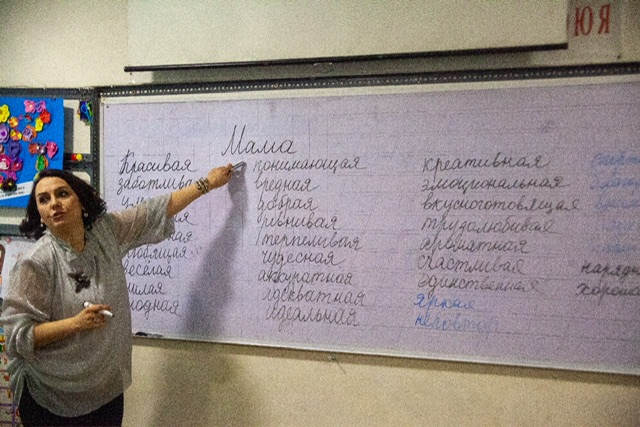 ЮЯ
Мама
Красивая
весёлая
милая
модная
понимающая
вредная
добрая
ревнивая
терпеливая
чудесная
аккуратная
адекватная
идеальная
креативная
эмоциональная
вкусноготовящая
трудолюбивая
счастливая
единственная
яркая